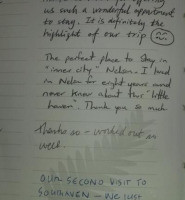 us such a wonderful apartment
to stay. It is definitely the
highlight of our trip
The perfect place to stay in
"inner city" Nelson. I had
in Nelson for eight years and
never knew about this "little
haven". Thank you so much
Thanks so - worked out so
well.
OUR SECOND VISIT TO
SOUTHAVEN - WE JUST